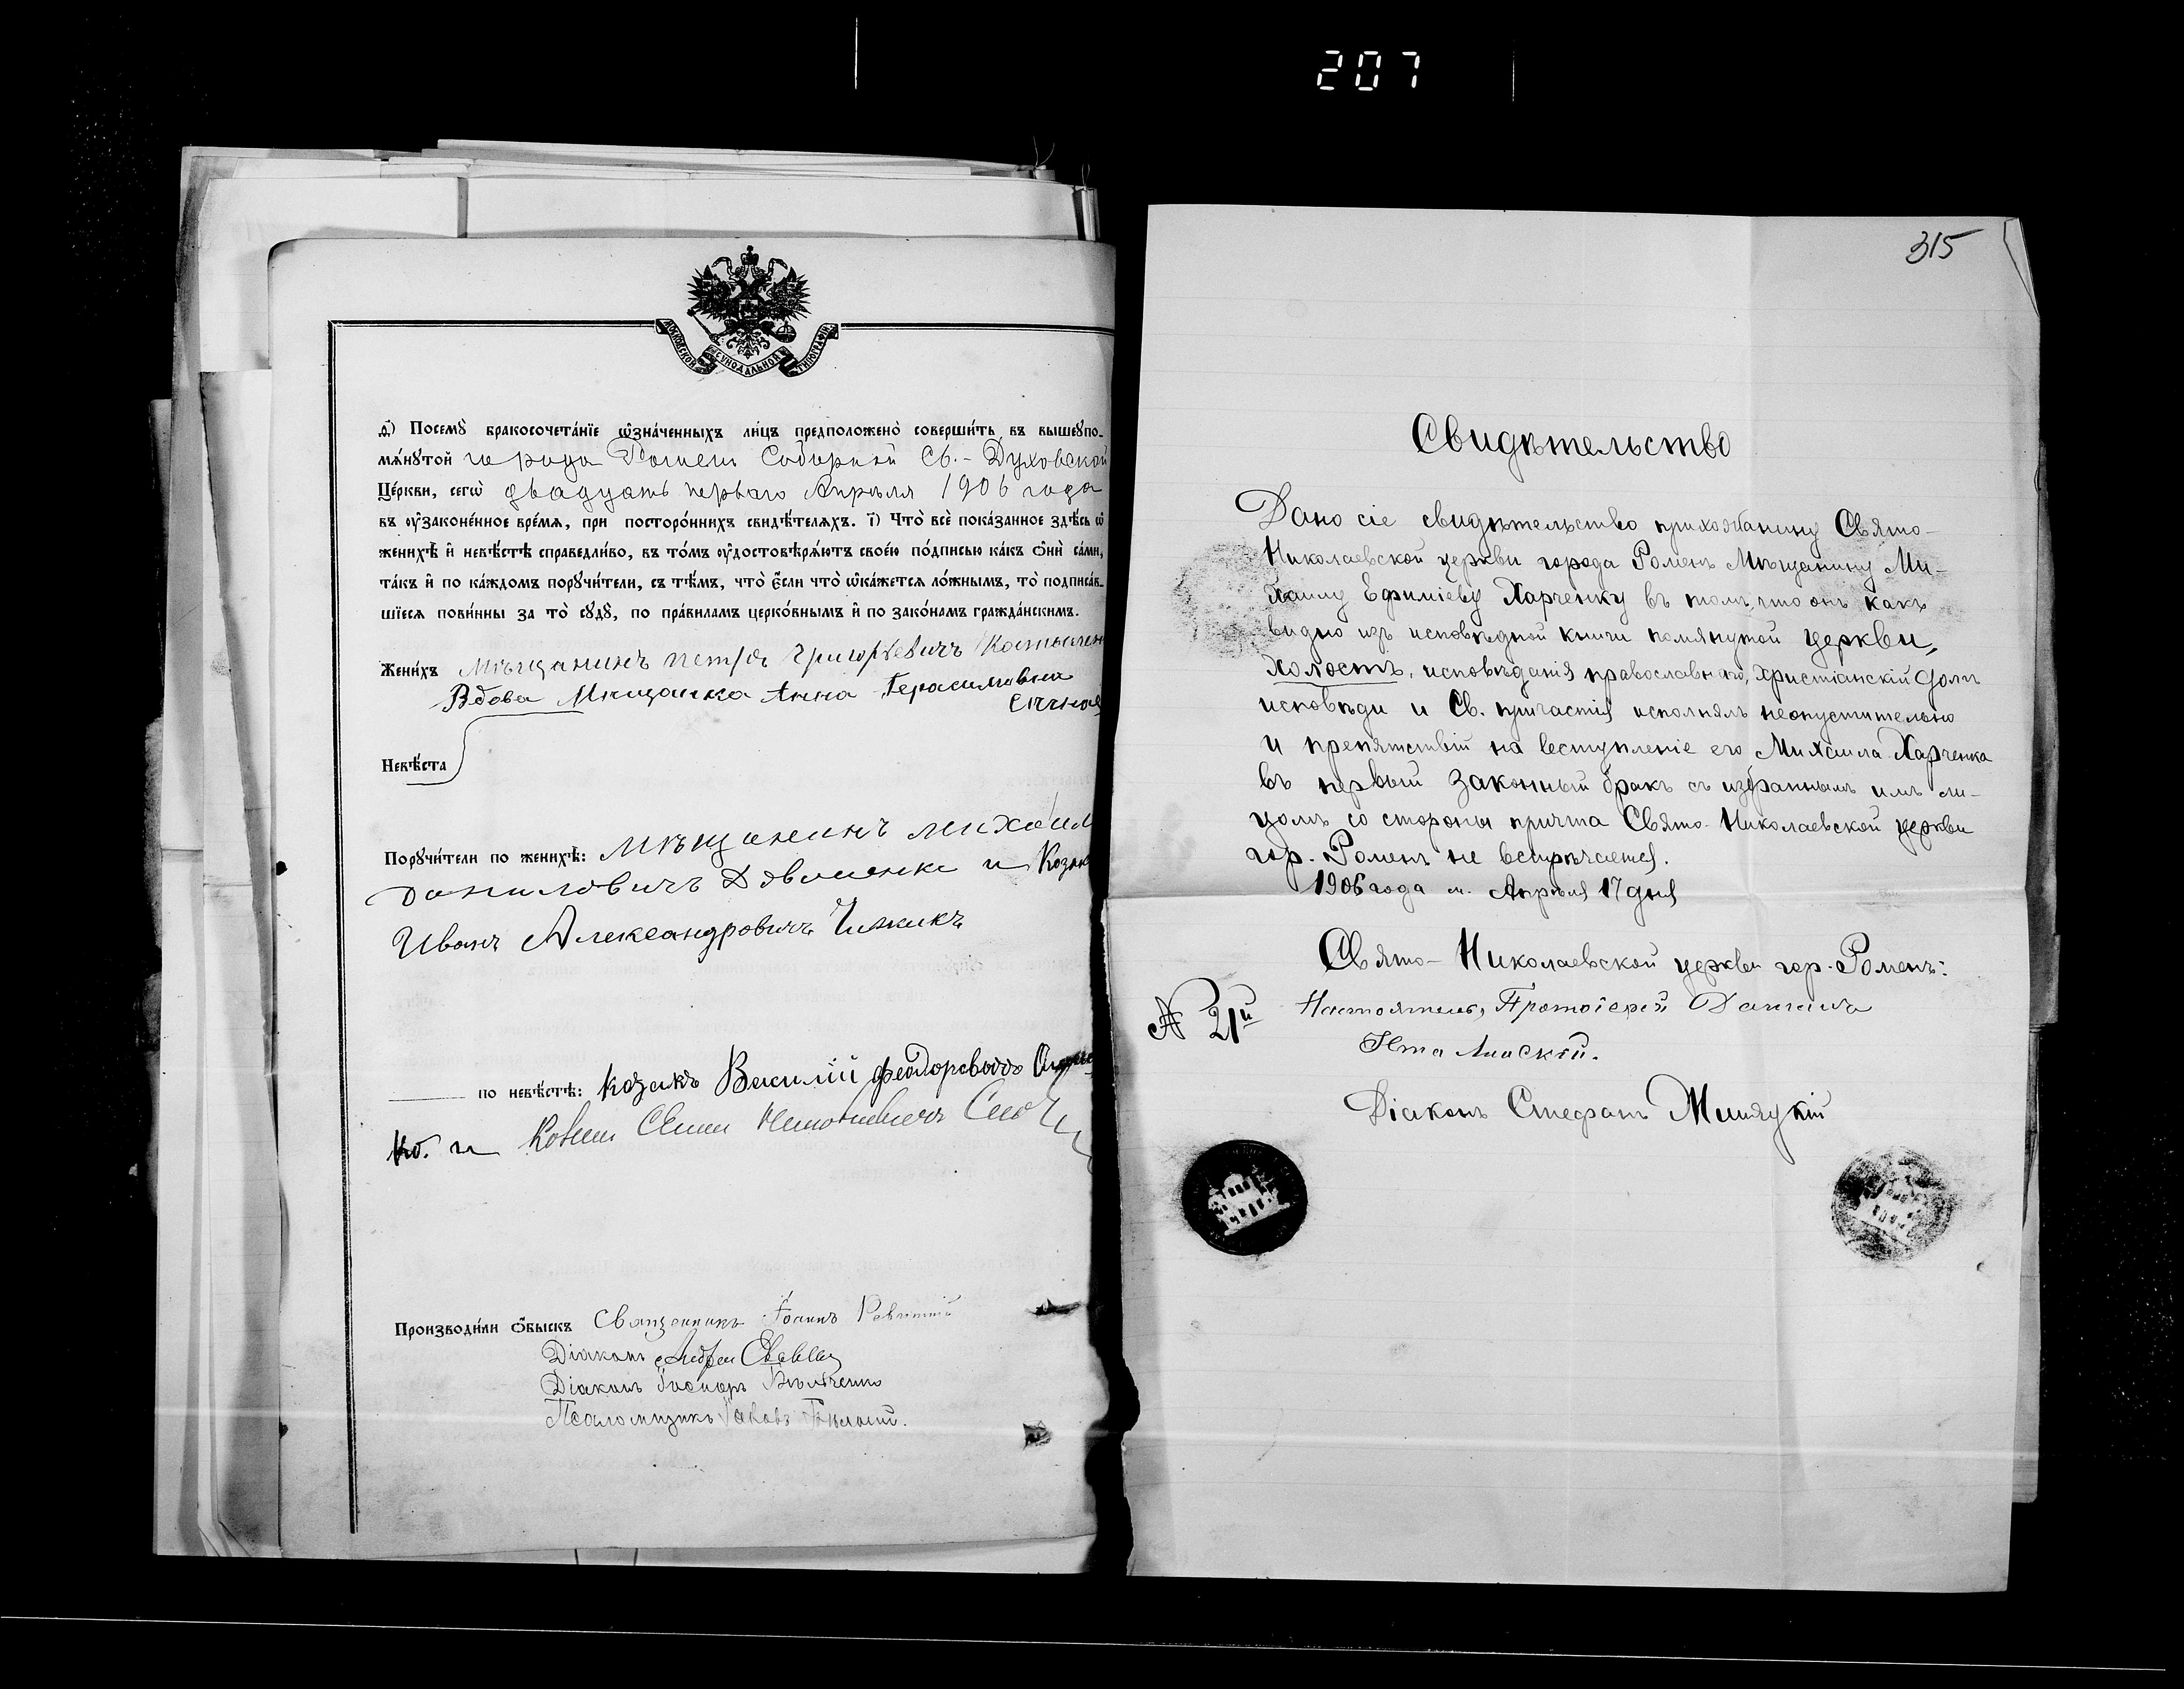 207
МОСКОВСКОЙ СѴНОДАЛЬНОЙ ТИПОГРАФІИ
д҃) Посемꙋ̀ бракосочета́нїе ѡ҆зна́ченныхъ ли́цъ предположено̀ соверши́ть въ вышеꙋпо-
мѧ́нꙋтой города Роменъ Соборной Св.-Духовской
Це́ркви, сегѡ̀ двадцать перваго Апрѣля 1906 года
въ ᲂу҆зако́ненное вре́мѧ, при посторо́ннихъ свидѣ́телѧхъ. і҃) Что̀ всѐ пока́занное здѣ́сь ѡ҆
женихѣ̀ и҆ невѣ́стѣ справедли́во, въ то́мъ ᲂу҆достовѣрѧ́ютъ свое́ю по́дписью ка́къ ѻ҆нѝ са́ми,
та́къ и҆ по ка́ждомъ порꙋчи́тели, съ тѣ́мъ, что̀ є҆́сли что̀ ѡ҆ка́жетсѧ ло́жнымъ, то̀ подписа́в-
шїесѧ пови́нны за то̀ сꙋдꙋ̀, по пра́виламъ церко́внымъ и҆ по зако́намъ гражда́нскимъ.
Жени́хъ Мѣщанинъ Петръ Григорьевичъ
Вдова Мѣщанка Анна Герасимовна
Невѣ́ста
Порꙋчи́тели по женихѣ̀: Мѣщанинъ Михаил
Даниловичъ и Козак
Иванъ Александровичъ Чижикъ
по невѣ́стѣ: Козакъ Василій Феодоровичъ
ко. и
Производи́ли ѻ҆́быскъ Священникъ Іоаннъ
Діаконъ Андрей
Діаконъ
Псаломщикъ Іаковъ
315
Свидѣтельство
Дано сіе свидѣтельство прихожанину Свято-
Николаевской церкви города Роменъ Мѣщанину Ми-
хаилу Ефиміеву Харченку въ томъ, что онъ какъ
видно изъ исповѣдной книги помянутой церкви,
холостъ, исповѣданія православнаго, христіанскій долгъ
исповѣди и Св. причастія исполнялъ неопустительно
и препятствій на вступленіе его Михаила Харченка
въ первый законный бракъ съ избраннымъ имъ ли-
цомъ со стороны причта Свято-Николаевской церкви
гор. Роменъ не встрѣчается.
1906 года м. Апрѣля 17 дня
Свято-Николаевской церкви гор. Роменъ:
Настоятель, Протоіерей Даніилъ
№ 21й
Діаконъ Стефанъ